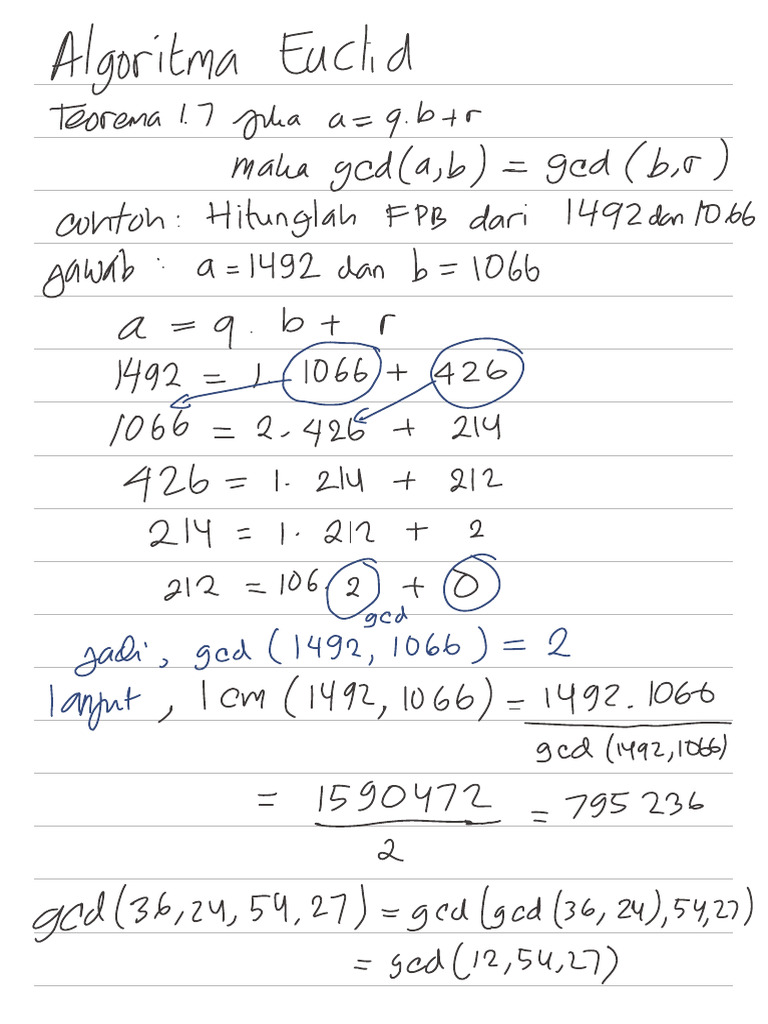 Algoritma Euclid
Teorema 1.7 jika a = q.b+r
maka gcd(a,b) = gcd(b,r)
contoh: Hitunglah FPB dari 1492 dan 1066
jawab: a = 1492 dan b = 1066
a = q. b + r
1492 = 1. 1066 + 426
1066 = 2. 426 + 214
426 = 1. 214 + 212
214 = 1. 212 + 2
212 = 106. 2 + 0
gcd
jadi, gcd(1492, 1066) = 2
lanjut, lcm(1492, 1066) = 1492. 1066
gcd(1492,1066)
= 1590472 = 795236
2
gcd(36,24,54,27) = gcd(gcd(36,24),54,27)
= gcd(12,54,27)